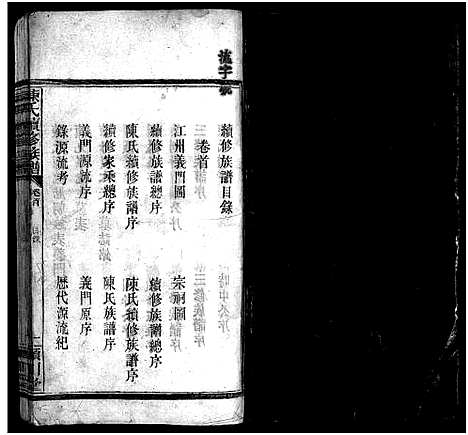 續修族譜目錄
卷首
江州義門圖　宗祠圖
續修族譜總序　續修族譜總序
陳氏續修族譜序　陳氏續修族譜序
續修家乘總序　陳氏族譜序
義門源流序　義門原序
錄源流考　歷代源流紀
陳氏續修族譜
卷首
目錄